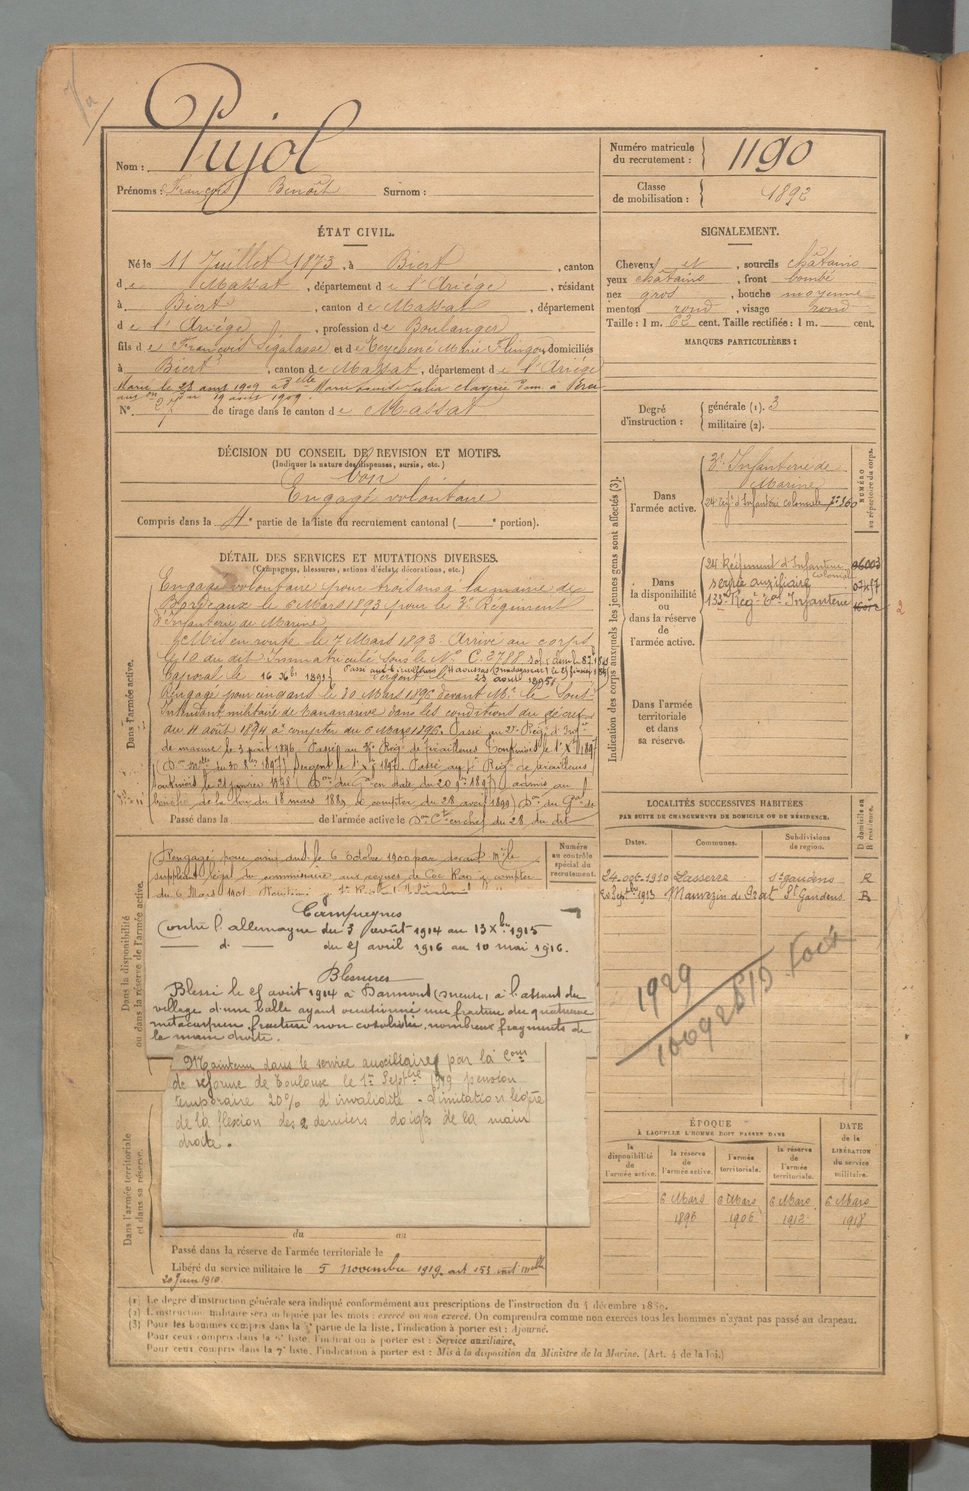 Pujol
Nom :
Prénoms : François Benoît Surnom :
Numéro matricule du recrutement : 1190
Classe de mobilisation : 1892
ÉTAT CIVIL.
Né le 11 Juillet 1873, à Biert, canton
de Massat, département de l'Ariége, résidant
à Biert, canton de Massat, département
de l'Ariége, profession de Boulanger
fils de François Segalasse et de Teychené Marie, domiciliés
à Biert, canton de Massat, département de l'Ariége
N° 27 de tirage dans le canton de Massat
SIGNALEMENT.
Cheveux et, sourcils châtains
yeux châtains, front bombé
nez gros, bouche moyenne
menton rond, visage rond
Taille : 1 m. 62 cent. Taille rectifiée : 1 m. cent.
MARQUES PARTICULIÈRES :
Degré d'instruction : générale (1). 3
militaire (2).
DÉCISION DU CONSEIL DE REVISION ET MOTIFS.
(Indiquer la nature des dispenses, sursis, etc.)
bon
Engagé volontaire
Compris dans la 4e partie de la liste du recrutement cantonal ( e portion).
Indication des corps auxquels les jeunes gens sont affectés (3).
NUMÉRO au répertoire du corps.
Dans l'armée active.
3e Infanterie de
Marine
24 Regt d'Infanterie coloniale
Dans la disponibilité ou dans la réserve de l'armée active.
24 Régiment d'Infanterie
coloniale
service auxiliaire
133e Regt Ter Infanterie
Dans l'armée territoriale et dans sa réserve.
DÉTAIL DES SERVICES ET MUTATIONS DIVERSES.
(Campagnes, blessures, actions d'éclat, décorations, etc.)
Dans l'armée active.
Engagé volontaire pour trois ans à la mairie de
Bordeaux le 6 Mars 1893 pour le 3e Régiment
d'Infanterie de Marine
Mis en route le 7 Mars 1893. Arrivé au corps
le 10 du dit Immatriculé sous le N° C. 3788
Caporal le 16 Xbre Sergent le 23 août 1895
Rengagé pour cinq ans le 30 Mars 1895 devant Mr le Sous-
Intendant militaire de Tananarive dans les conditions du décret
du 4 août 1894 à compter du 6 Mars 1896. Passé au 2e Reg. d'Infrie
de marine le 3 août 1896. Passé au Reg. de tirailleurs Tonkinois le 1er Xbre 1897
Sergent le 1er Xbre 1897. Passé au Regt de tirailleurs
tonkinois le 21 janvier 1898 en date du 20 1897) admis au
bénéfice de la loi du 18 mars 1889 à compter du 28 avril 1899
Passé dans la de l'armée active le
Dans la disponibilité ou dans la réserve de l'armée active.
Numéro au contrôle spécial du recrutement.
Rengagé pour cinq ans le 6 octobre 1900 par devant Mr le
suppléant légal du commissaire
du 6 Mars 1901.
Campagnes
Contre l'allemagne du 3 août 1914 au 13 Xbre 1915
— d° — du 25 avril 1916 au 10 mai 1916.
Blessures
Blessé le 25 août 1914 à (Meuse), à l'assaut du
village d'une balle ayant occasionné une fracture du quatrième
métacarpien, fracture non consolidée, nombreux fragments de
la main droite.
Maintenu dans le service auxiliaire par la Comon
de réforme de Toulouse le 1er Septbre 1919 pension
temporaire 20% d'invalidité. Limitation légère
de la flexion des 2 derniers doigts de la main
droite.
Dans l'armée territoriale et dans sa réserve.
du au
Passé dans la réserve de l'armée territoriale le
Libéré du service militaire le 5 novembre 1919
20 Juin 1910.
LOCALITÉS SUCCESSIVES HABITÉES
PAR SUITE DE CHANGEMENTS DE DOMICILE OU DE RÉSIDENCE.
Dates. Communes. Subdivisions de région. D domicile ou R résidence.
24-oct-1910 Lasserre St gaudens R
Septbre 1913 Mauvezin de Prat St Gaudens R
1929
ÉPOQUE
À LAQUELLE L'HOMME DOIT PASSER DANS
DATE de la LIBÉRATION du service militaire.
la disponibilité de l'armée active.
la réserve de l'armée active.
l'armée territoriale.
la réserve de l'armée territoriale.
6 Mars 1896
6 Mars 1906
6 Mars 1912
6 Mars 1918
(1) Le degré d'instruction générale sera indiqué conformément aux prescriptions de l'instruction du 4 décembre 1889.
(2) L'instruction militaire sera indiquée par les mots : exercé ou non exercé. On comprendra comme non exercés tous les hommes n'ayant pas passé au drapeau.
(3) Pour les hommes compris dans la 5e partie de la liste, l'indication à porter est : Ajourné.
Pour ceux compris dans la 6e liste, l'indication à porter est : Service auxiliaire.
Pour ceux compris dans la 7e liste, l'indication à porter est : Mis à la disposition du Ministre de la Marine. (Art. 4 de la loi.)